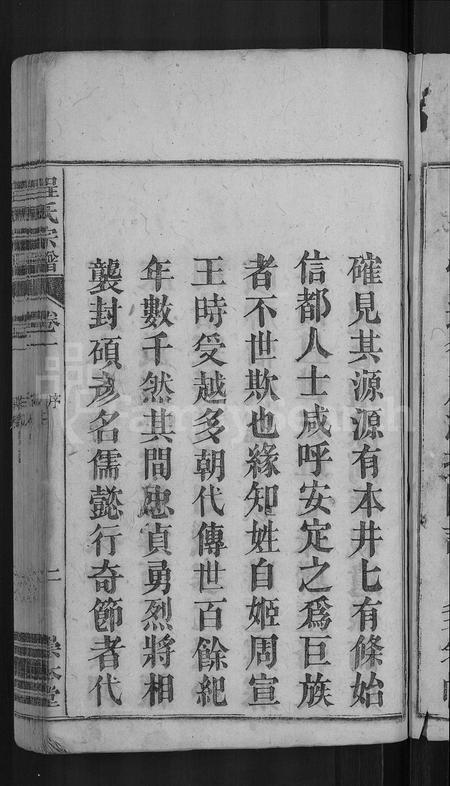 確見其源源有本井七有條始
信都人士咸呼安定之爲巨族
者不世欺也緣知姓自姬周宣
王時受越多朝代傳世百餘紀
年數千然其間忠貞勇烈將相
襲封碩彥名儒懿行奇節者代
程氏宗譜
卷一
序
二
堂
FamilySearch